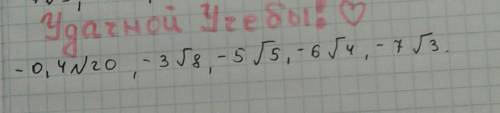 Удачной Учебы! ♡
-0,4√20, -3√8, -5√5, -6√4, -7√3.